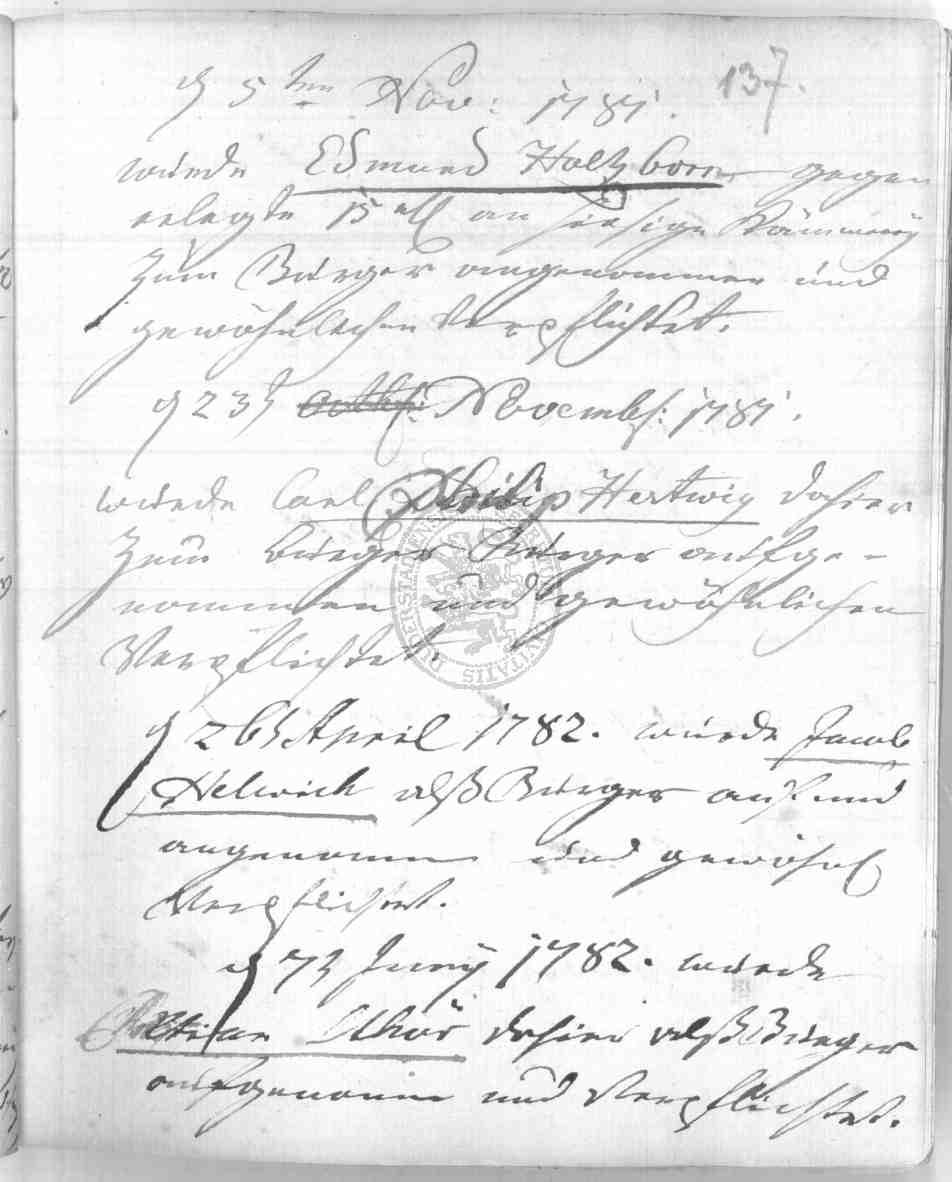 137.
d 5ten Nov: 1781.
wurde Edmund Holtzborn gegen
erlegte 15 an hiesige Kämmerey
zum Bürger angenommen und
gewöhnlichen Verpflichtet.
d 23t Novembr: 1781.
wurde Carl Philip Hertwig dahier
zum Bürger aufge-
nommen und gewöhnlichen
Verpflichtet.
d 26t April 1782. wurde Jacob
Helwich alß Bürger auf und
angenomen und gewöhnl
Verpflichtet.
d 7t Juny 1782. wurde
dahier alß Bürger
aufgenomen und Verpflichtet.